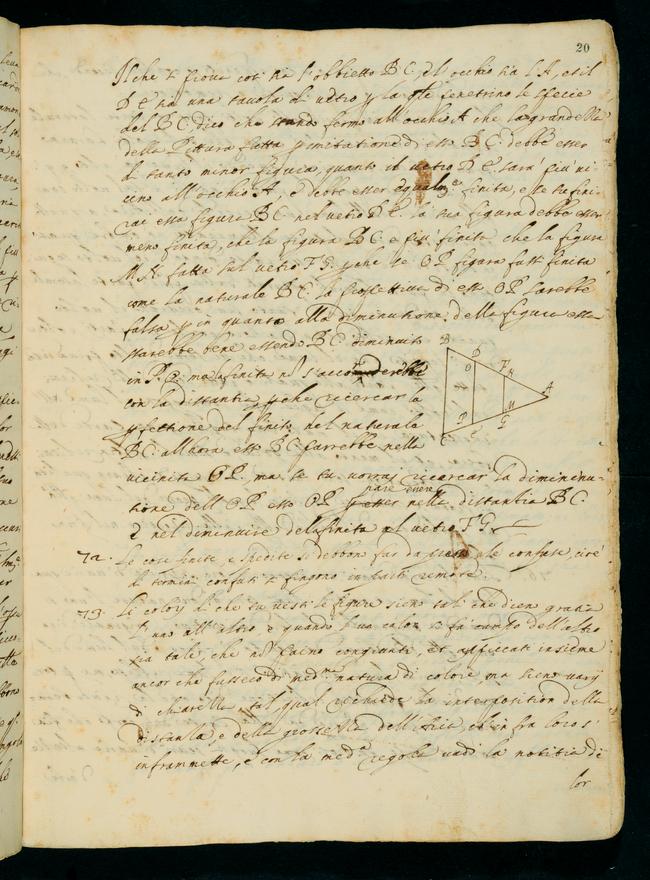 20
Il che si prova così sia l'obbietto B C. et l'occhio sia l A, et il
D E sia una tavola di vetro p la q.le penetrino le specie
del B C. dico che stando fermo all'occhio A che la grandezza
della Pittura fatta p imitatione di esso B C. debbe esser
di tanto minor figura, quanto il vetro D E. sarà più vi
cino all'occhio A, e debbe esser finita, e se tu fini
rai essa figura B C nel vetro D E. la tua figura debbe esser
meno finita, che la figura B C, e più finita che la figura
M N. fatta sul vetro F G. p che se O P. figura fusse finita
come la naturale B C. la prospettiva di esso O P. sarebbe
falsa p in quanto alla diminutione della figura essa
starebbe bene essendo B C. diminuito
in P O. ma la finita nō s'accorderebbe
con la distantia p che ricercar la
pfettione del finito nel naturale
B C. all'hora esso B C. sarrebbe nella
vicinità O P. ma se tu vorrai ricercar la diminu-
tione dell' O P. esso O P. pare essere nella distantia B C.
e nel diminuire del finito al vetro F G.
B
D
O
F
N
A
P
E
M
G
C
72. Le cose finite, e spedite si debbono far da presso e le confuse, cioè
di termini confusi si fingono in parti remote.
73. Li colorj di che tu vesti le figure sieno tali che dien gratia
l'uno all'altro e quando l'un color si fa campo dell'altro
sia tale, che nō paino congiunti, et appiccati insieme
ancor che fusseco di med.ma natura di colore ma sieno varj
di chiarezza tal qual richiede la interposition della
distanza e della grossezza dell'Aria, ch'in fra loro s'
inframmette, e con la med.a regola vadi la notitia di
lor